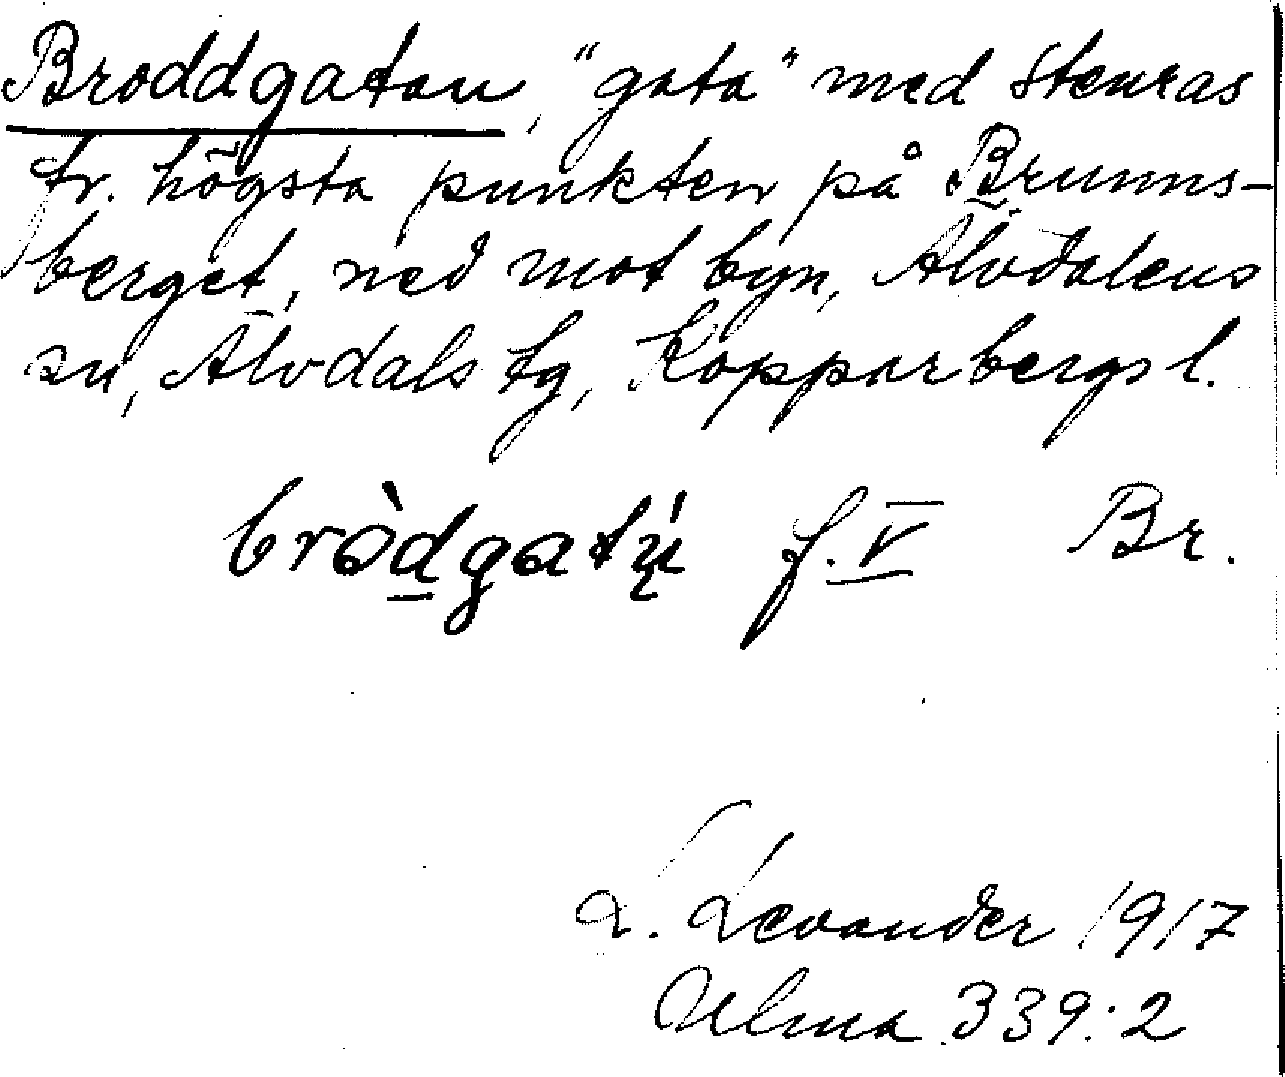 Broddgatan, "gata" med stenras
fr. högsta punkten på Brunns-
berget, ned mot byn, Älvdalens
sn, Älvdals tg, Kopparbergs l.
bròdgatų́ f. V Br.
L. Levander 1917
Ulma 339:2